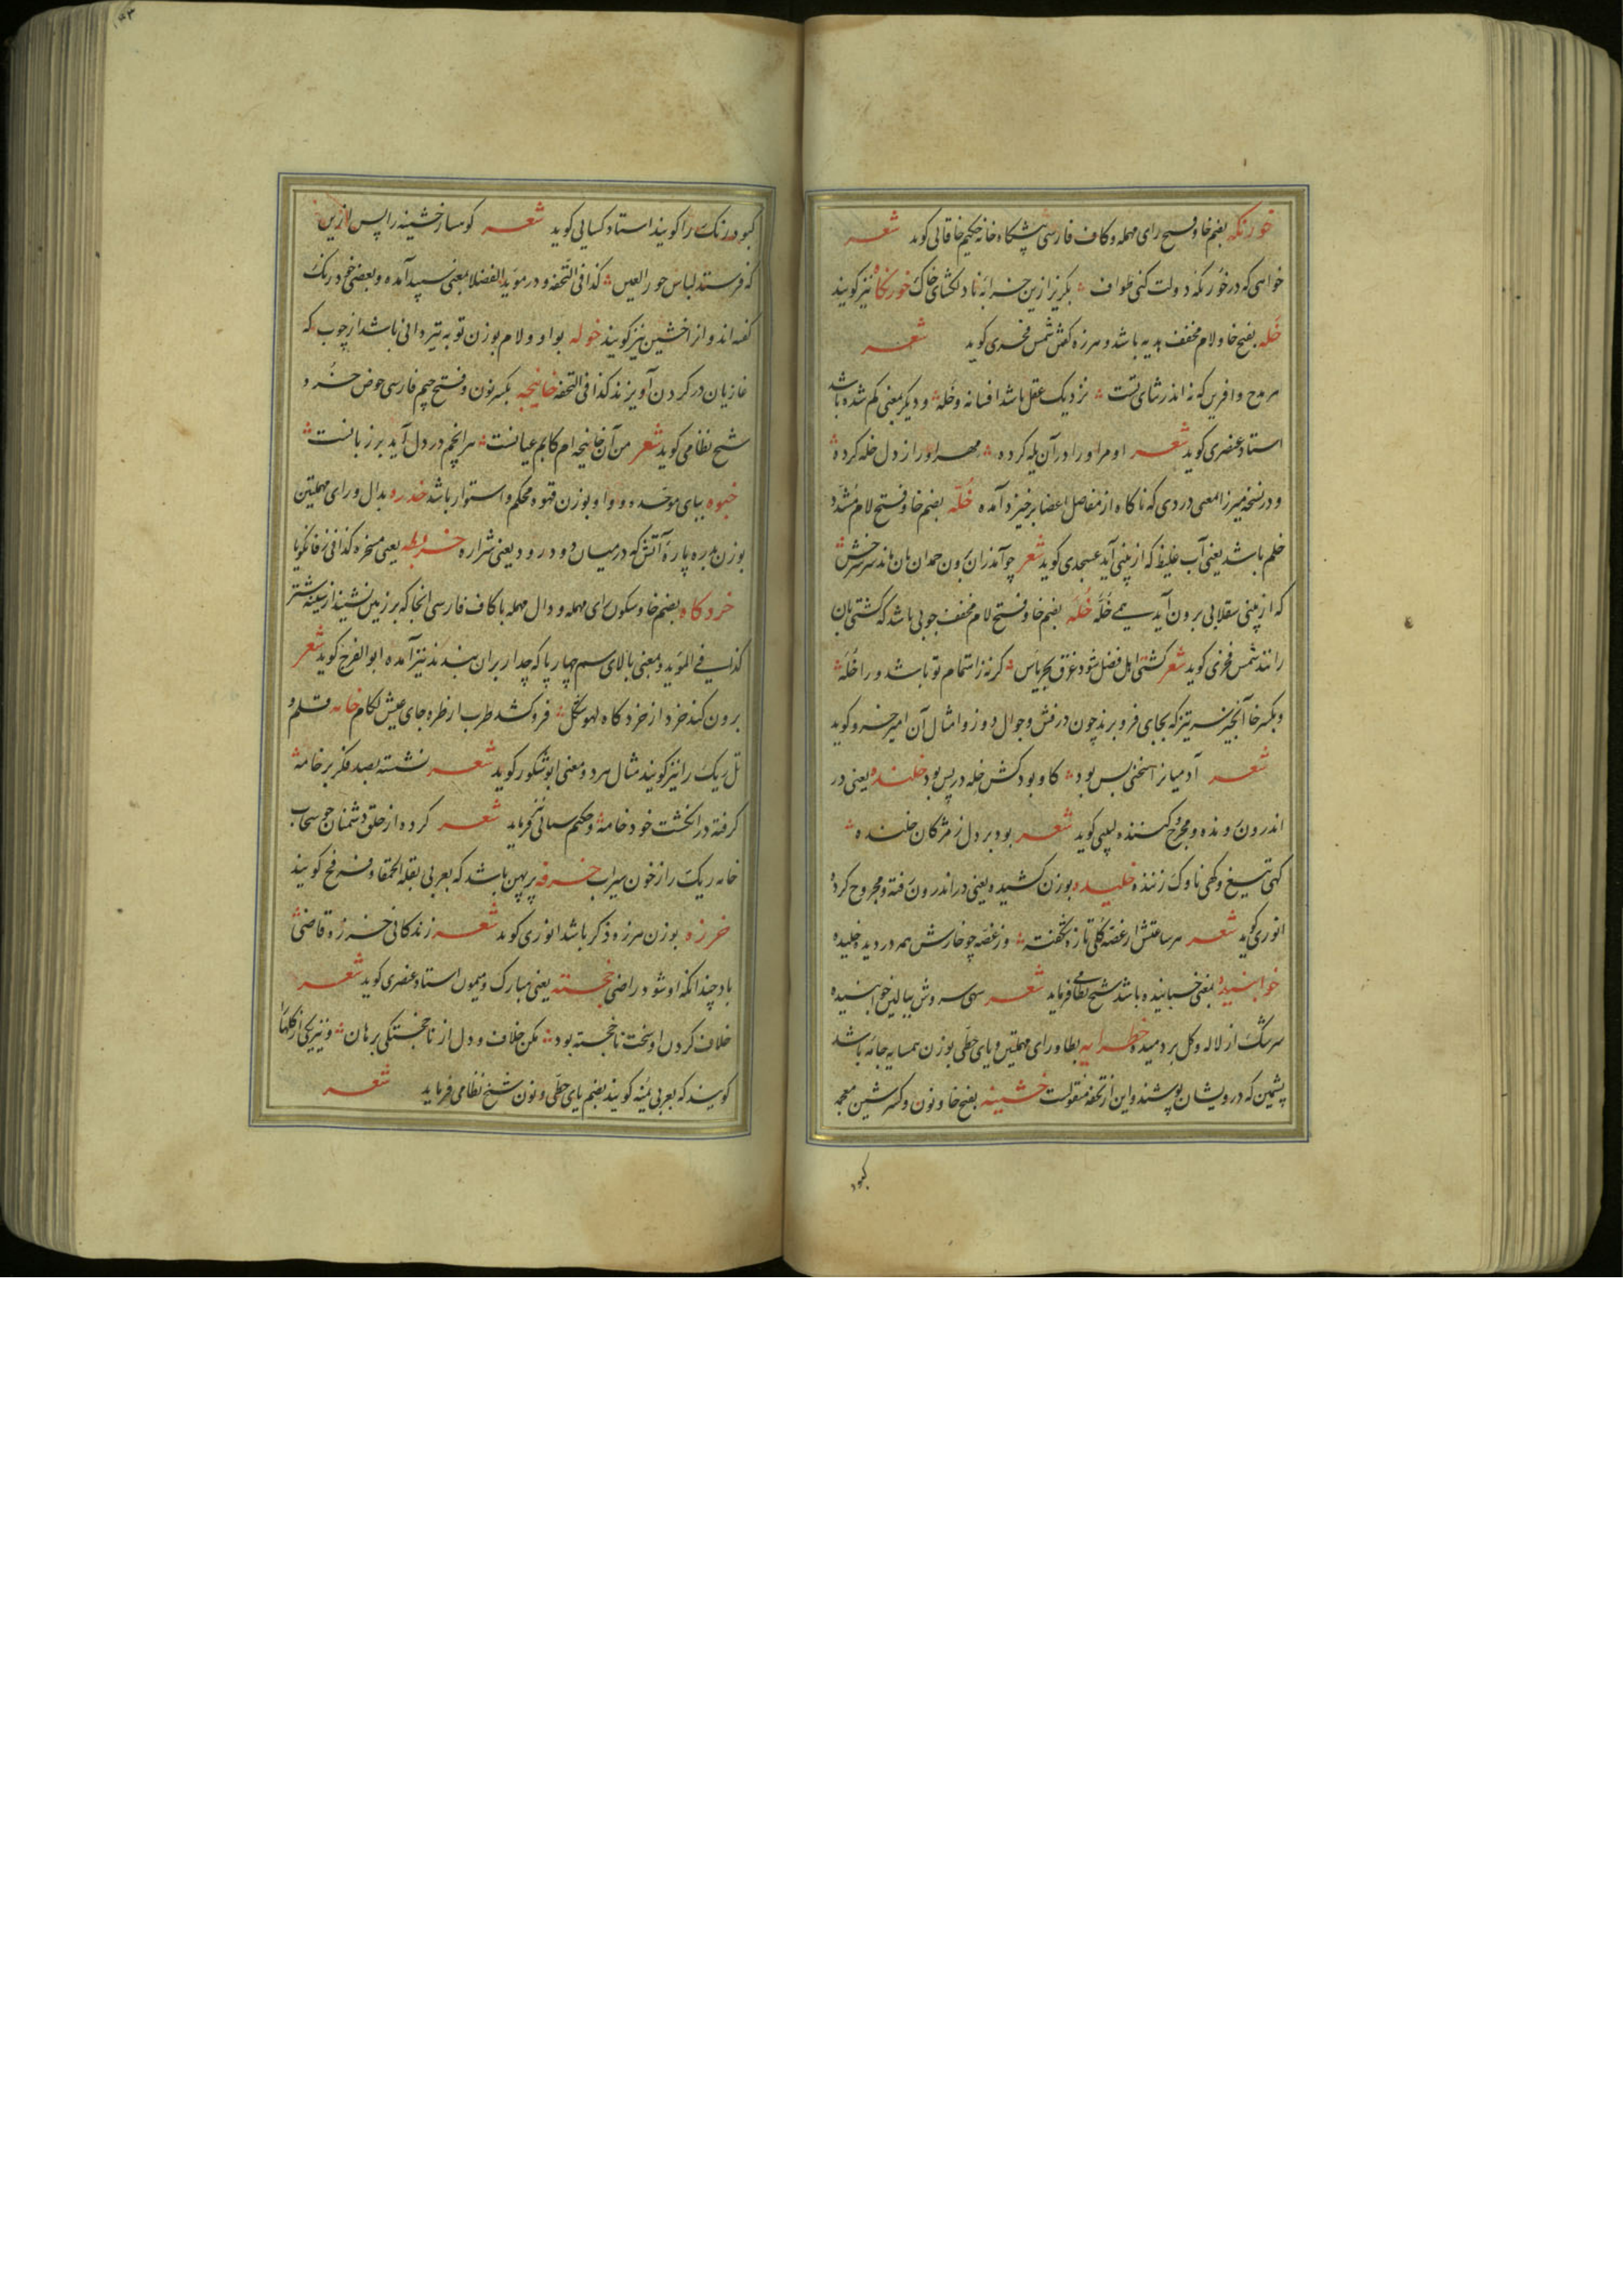 خورنکه بضم خا و فتح رای مهمله و کاف فارسی پیشکاه خانه حکیم خاقانی کوید شعر
خواهی که در خورنکه دولت کنی طواف بکریز ازین خرابه نادلکشای خاک خورنکاه نیز کویند
خله بفتح خا و لام مخفف هدیه باشد و هرزه کفتن شمس فخری کوید شعر
مدح و آفرین که نه اندر ثنای تست نزدیک عقل باشد افسانه و خله و دیکر بمعنی کم شده باشد
استاد عنصری کوید شعر او مرا و را در آن یله کرده مهر او را ز دل خله کرده
و در نسخه میرزا بمعنی دردی که ناکاه از مفاصل اعضا برخیزد آمده خله بضم خا و فتح لام مشدد
خلم باشد یعنی آب غلیظ که از بینی آید عسجدی کوید شعر
که از بینی سقلابی برون آید همی خله خله بضم خا و فتح لام مخفف چوبی باشد که کشتی بان
رانند شمس فخری کوید شعر کشتی اهل فضل شود غرق بحر یأس کر نه ز اهتمام تو باشد ورا خله
و بکسر خا آنچیز سر تیز که بجای فرو برند چون درفش و جوال دوز و امثال آن امیر خسرو کوید
شعر آدمیانرا سخنی بس بود کاو بود کش خله در پس بود خلنده یعنی در
اندرون رونده و مجروح کننده لبیبی کوید شعر بود بر دل ز مژکان خلنده
کهی تیغ و کهی ناوک زننده خلیده بوزن کشیده یعنی در اندرون رفته و مجروح کرده
انوری کوید شعر هر ساعتش از غصه کلی تازه شکفته وز غصه چو خارش همه در دیده خلیده
خوابنیده بمعنی خسبانیده باشد شیخ نظامی فرماید شعر سهی سروش ببالین خوابنیده
سرشک از لاله و کل بر دمیده خطرایه بطا و رای مهملتین و یای حطی بوزن همسایه جامه باشد
پشمین که درویشان پوشند و این از تحفه منقولست خشینه بفتح خا و نون و کسر شین معجمه
کبود
کبود رنک را کویند استاد کسایی کوید شعر کوهسار خشینه را پس ازین
که فرستد لباس حور العین کذا فی التحفه و در موید الفضلا بمعنی سپید آمده و بعضی خود رنک
کفته اند و از اخشین نیز کویند خوله بواو و لام بوزن توبه تیردانی باشد از چوب که
غازیان در کردن آویزند کذا فی التحفه خانیچه بکسر نون و فتح چیم فارسی حوض خرد
شیخ نظامی کوید شعر من آن خانیچه ام کابم عیانست هر انچم در دل آید بر زبانست
خبوه ببای موحده و واو بوزن قهوه محکم و استوار باشد خدره بدال و رای مهملتین
بوزن بدره پاره آتش که در میان دود رود یعنی شراره یعنی مسخره کذا فی زفانکویا
خردکاه بضم خا و سکون رای مهمله و دال مهمله با کاف فارسی انجا که بر زمین نشیند از سینه شتر
کذا فی الموید و بمعنی بالای سم چهارپا که چدار بران بندند نیز آمده ابو الفرج کوید شعر
برون کند خرد از خردکاه لهو شکل فرو کشد طرب از طره جای عیش لکام خامه قلم و
تل ریک را نیز کویند مثال هر دو معنی ابو شکور کوید شعر نشسته بصد فکر بر خامه
کرفته در انکشت خود خامه و حکیم سنائی نیز فرماید شعر کرده از خلق دشمنان چو سحاب
خامه ریک را ز خون سیراب خرفه پرپهن باشد که بعربی بقلة الحمقا و فرفخ کویند
خرزه بوزن هرزه ذکر باشد انوری کوید شعر زندکانی خرزه قاضی
باد چندانکه او شود راضی خجسته یعنی مبارک و میمون استاد عنصری کوید شعر
خلاف کردن او سخت ناخجسته بود مکن خلاف و دل از ناخجستکی برهان و نیز یکی از کلها
کویند که بعربی یمنه کویند بضم یای حطی و نون شیخ نظامی فرماید شعر